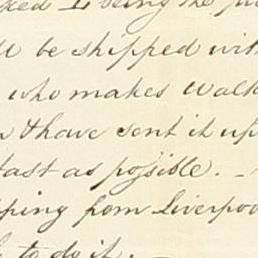 being the
be shipped with
who makes Walk
& have sent it up
fast as possible. -
pping from Liverpoo
to do it.